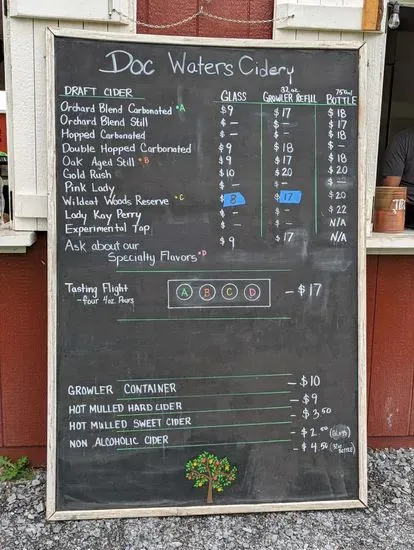 Doc Waters Cidery
DRAFT CIDER GLASS 32oz GROWLER REFILL 750ml BOTTLE
Orchard Blend Carbonated •A $9 $17 $18
Orchard Blend Still $– $– $17
Hopped Carbonated $– $– $18
Double Hopped Carbonated $9 $18 $–
Oak Aged Still •B $9 $17 $18
Gold Rush $10 $20 $20
Pink Lady $– $– $–
Wildcat Woods Reserve •C $8 $17 $20
Lady Kay Perry $– $– $22
Experimental Tap $– $– N/A
Ask about our
Specialty Flavors •D $9 $17 N/A
Tasting Flight A B C D – $17
- four 4oz Pours
GROWLER CONTAINER – $10
HOT MULLED HARD CIDER – $9
HOT MULLED SWEET CIDER – $3.50
NON ALCOHOLIC CIDER – $2.50 (GLASS)
– $4.50 BOTTLE